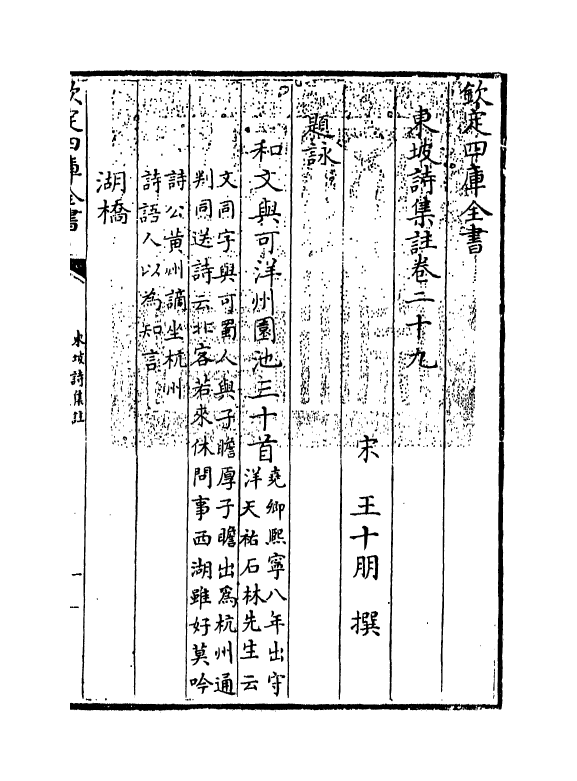 欽定四庫全書
東坡詩集註卷二十九
宋 王十朋 撰
題詠
和文與可洋州園池三十首
堯卿熙寧八年出守
洋天祐石林先生云
文同字與可蜀人與子瞻厚子瞻出為杭州通
判同送詩云北客若來休問事西湖雖好莫吟
詩公黄州謫坐杭州
詩語人以為知言
湖橋
欽定四庫全書
東坡詩集註
一